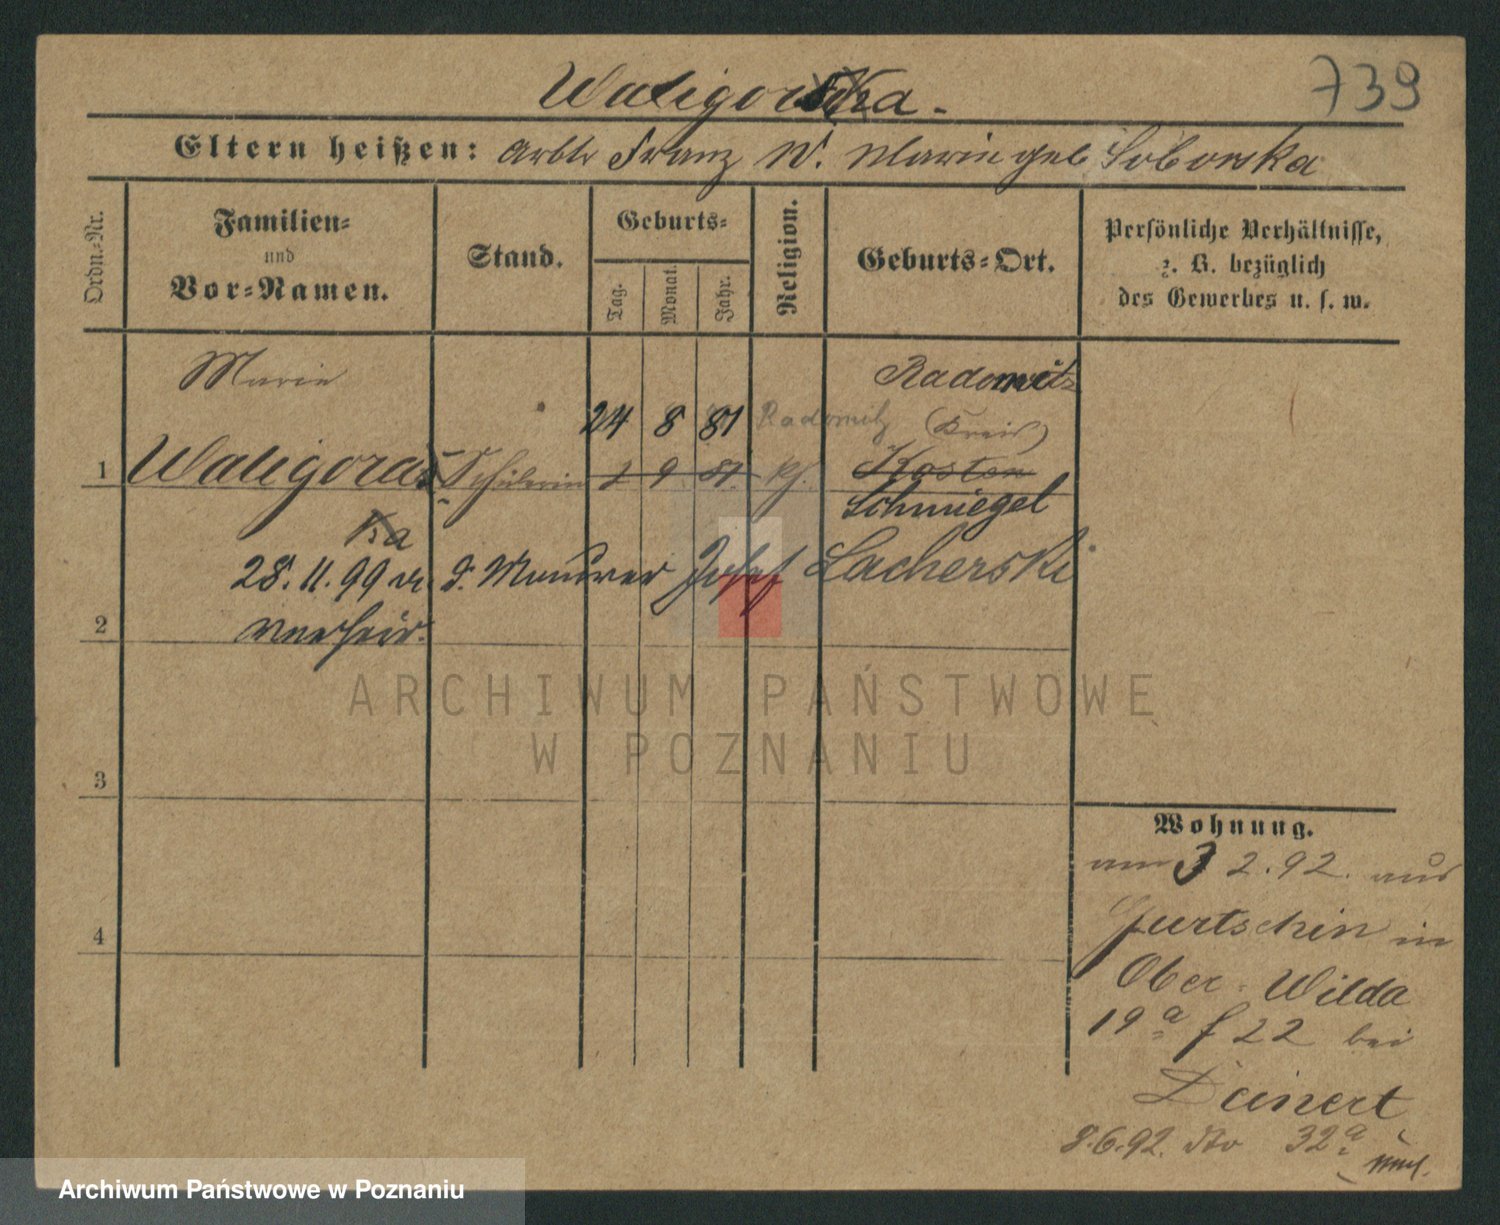 Waligorska. 739
Eltern heißen: Arbtr Franz W. Marie geb Sobowska
Ordn.-Nr.
Familien-
und
Vor-Namen.
Stand.
Geburts-
Tag.
Monat.
Jahr.
Religion.
Geburts-Ort.
Persönliche Verhältnisse,
z. B. bezüglich
des Gewerbes u. s. w.
Marie Radomitz
24 8 81 Radomitz (Kreis)
1 Waligora Schülerin 2 9 81 kh. Kosten
Schmiegel
ka
28. 11. 99 m. d. Maurer Josef Lacherski
2 verheir.
ARCHIWUM PAŃSTWOWE
W POZNANIU
3
4
Wohnung.
am 3 2. 92. aus
Gurtschin in
Ober-Wilda
19a f 22 bei
Deinert
8.6.92. dto 32a
Archiwum Państwowe w Poznaniu